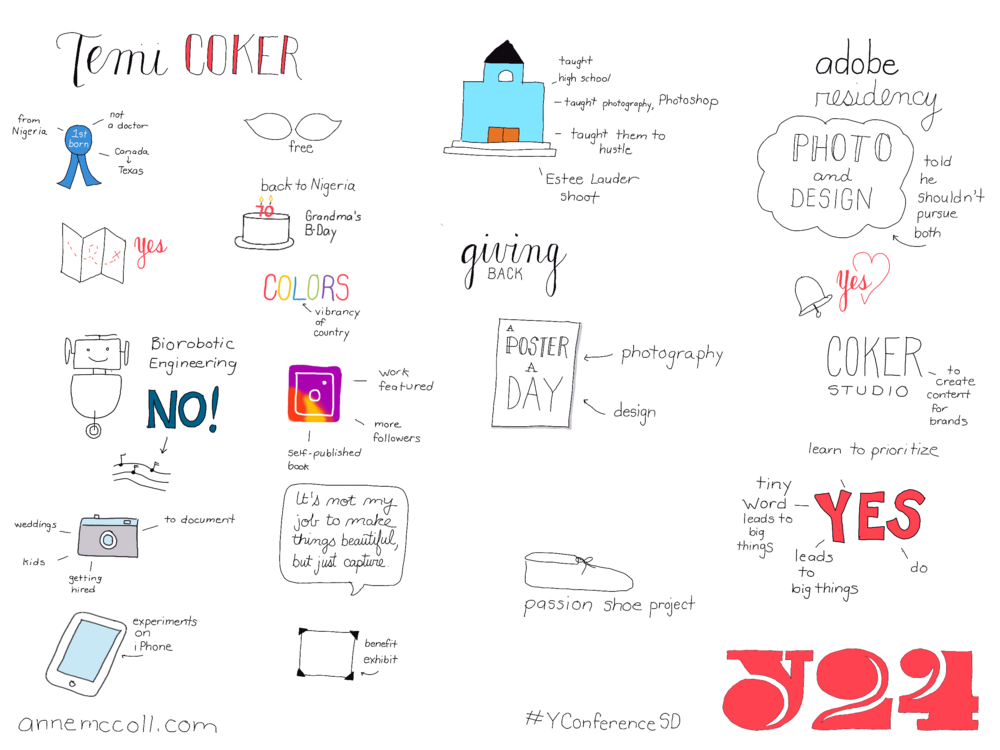 Temi COKER
from
Nigeria
not
a doctor
1st
born
Canada
↓
Texas
Yes
Biorobotic
Engineering
NO!
weddings
to document
kids
getting
hired
experiments
on
iPhone
annemccoll.com
free
back to Nigeria
70
Grandma's
B-Day
COLORS
vibrancy
of
country
work
featured
more
followers
self-published
book
It's not my
job to make
things beautiful,
but just capture.
benefit
exhibit
taught
high school
taught photography, Photoshop
taught them to
hustle
Estee Lauder
shoot
giving
BACK
A
POSTER
A
DAY
photography
design
passion shoe project
#YConferenceSD
adobe
residency
PHOTO
and
DESIGN
told
he
shouldn't
pursue
both
Yes
COKER
STUDIO
to
create
content
for
brands
learn to prioritize
tiny
word
leads to
big
things
YES
leads
to
big things
do
Y24